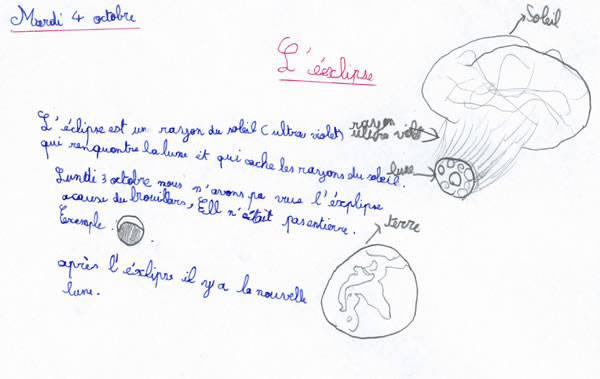 Mardi 4 octobre
Soleil
L'éexlipse
L'éclipse est un rayon du soleil (ultra violet)
rayon
ultra violet
qui renquontre la lune et qui cache les rayons du soleil.
lune
Lundi 3 octobre nous n'avons pa vue l'éxplipse
acause du brouillars, Ell n'était pas entierre.
Exemple :
terre
après l'éxlipse il y a la nouvelle
lune.